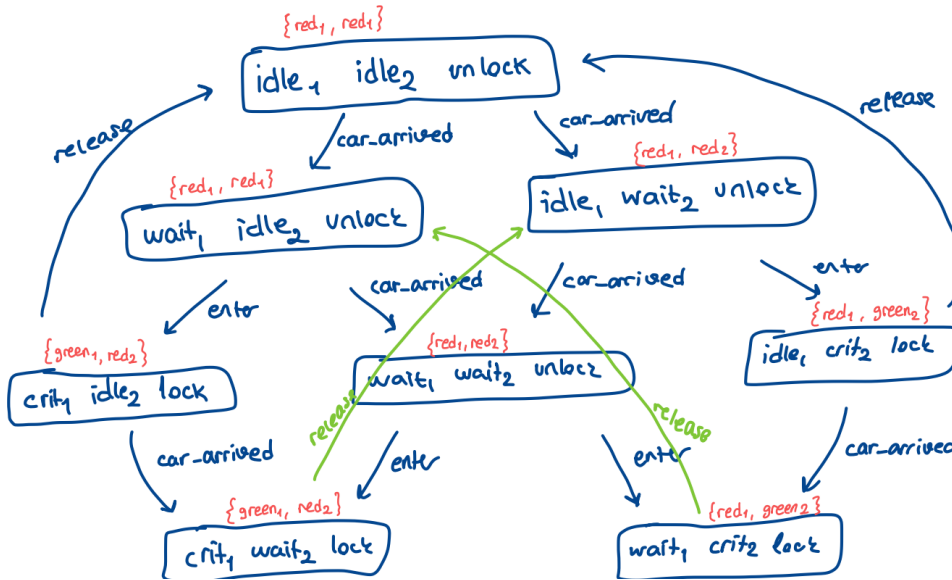 {red₁, red₁}
idle₁ idle₂ unlock
release
car_arrived
car_arrived
release
{red₁, red₁}
wait₁ idle₂ unlock
{red₁, red₂}
idle₁ wait₂ unlock
enter
car_arrived
car_arrived
enter
{green₁, red₂}
crit₁ idle₂ lock
{red₁, red₂}
wait₁ wait₂ unlock
{red₁, green₂}
idle₁ crit₂ lock
car_arrived
release
enter
enter
release
car_arrived
{green₁, red₂}
crit₁ wait₂ lock
{red₁, green₂}
wait₁ crit₂ lock